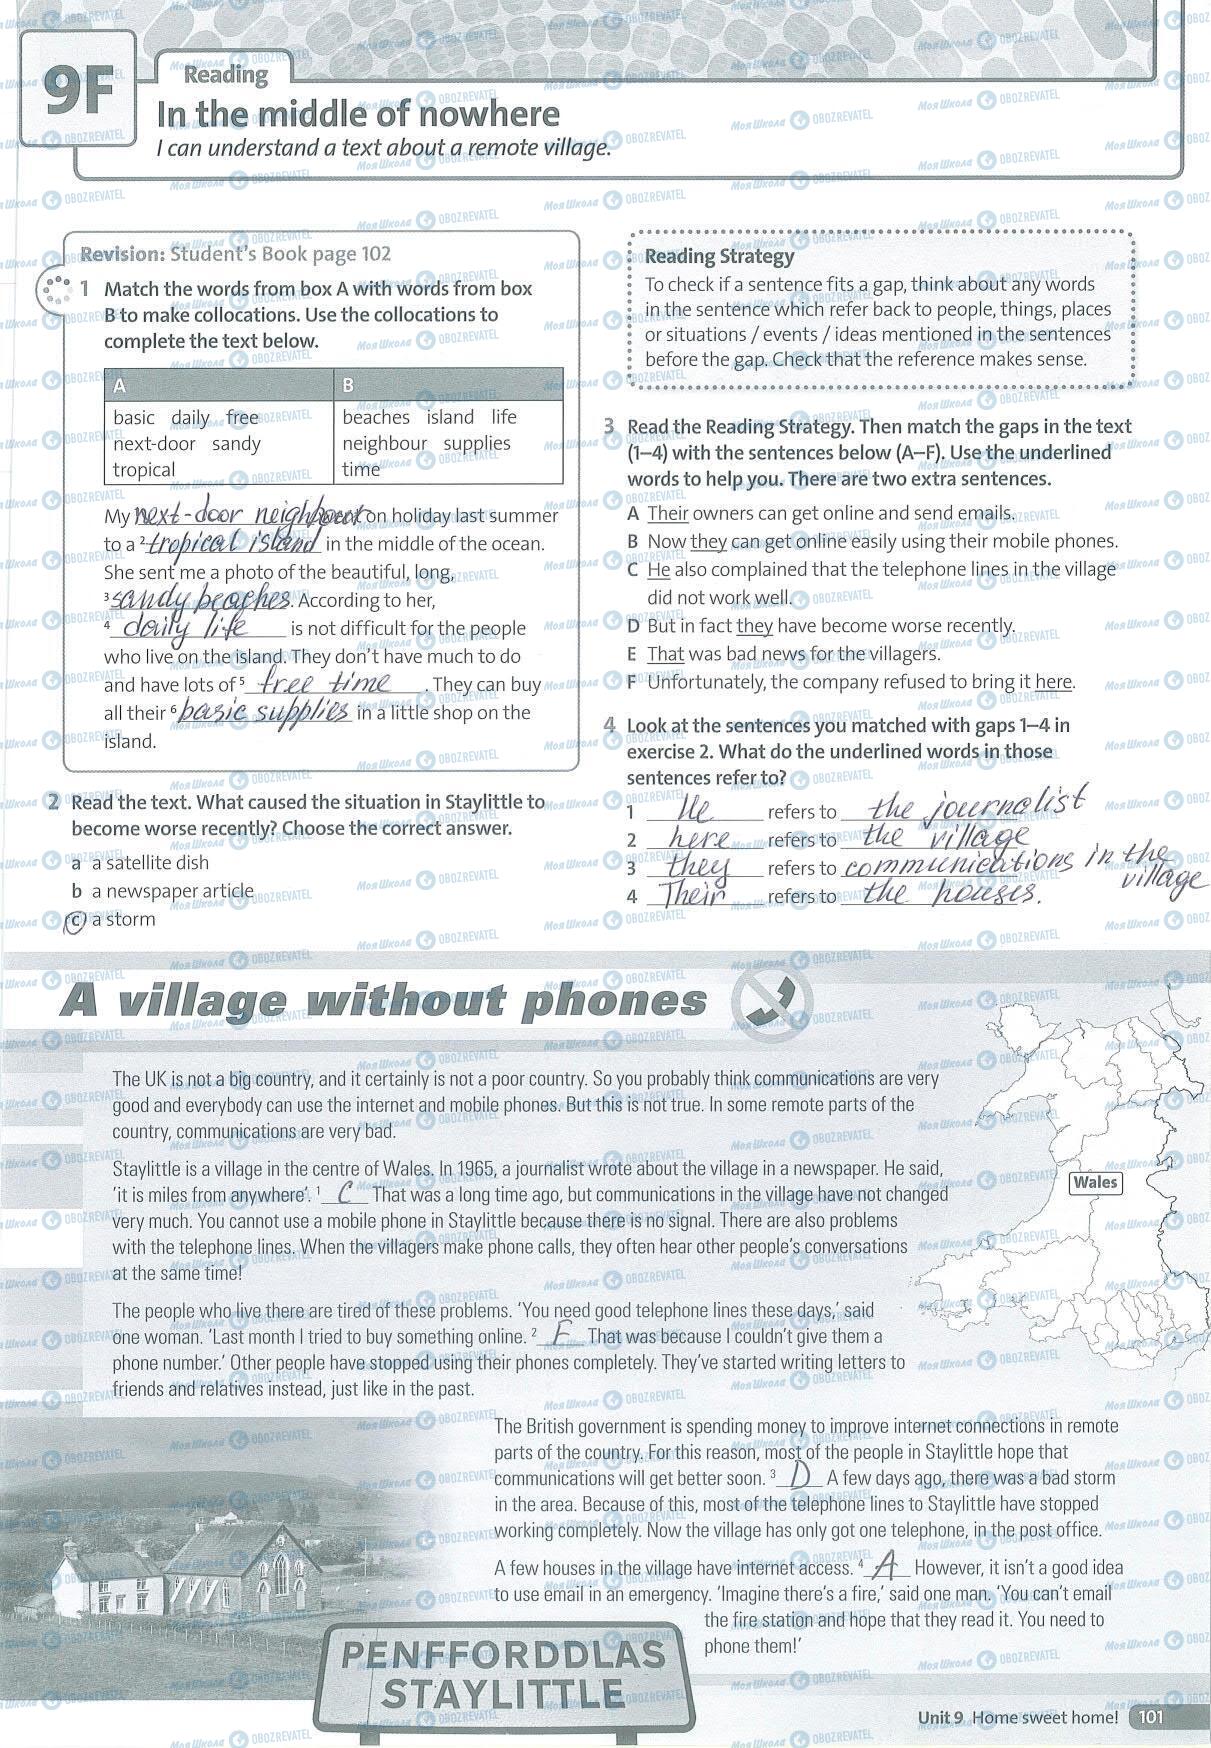 9F
Reading
In the middle of nowhere
I can understand a text about a remote village.
Revision: Student's Book page 102
1 Match the words from box A with words from box
B to make collocations. Use the collocations to
complete the text below.
A B
basic daily free beaches island life
next-door sandy neighbour supplies
tropical time
My next-door neighbour went on holiday last summer
to a ² tropical island in the middle of the ocean.
She sent me a photo of the beautiful, long,
³ sandy beaches. According to her,
⁴ daily life is not difficult for the people
who live on the island. They don't have much to do
and have lots of ⁵ free time. They can buy
all their ⁶ basic supplies in a little shop on the
island.
2 Read the text. What caused the situation in Staylittle to
become worse recently? Choose the correct answer.
a a satellite dish
b a newspaper article
c a storm
Reading Strategy
To check if a sentence fits a gap, think about any words
in the sentence which refer back to people, things, places
or situations / events / ideas mentioned in the sentences
before the gap. Check that the reference makes sense.
3 Read the Reading Strategy. Then match the gaps in the text
(1–4) with the sentences below (A–F). Use the underlined
words to help you. There are two extra sentences.
A Their owners can get online and send emails.
B Now they can get online easily using their mobile phones.
C He also complained that the telephone lines in the village
did not work well.
D But in fact they have become worse recently.
E That was bad news for the villagers.
F Unfortunately, the company refused to bring it here.
4 Look at the sentences you matched with gaps 1–4 in
exercise 2. What do the underlined words in those
sentences refer to?
1 He refers to the journalist
2 here refers to the village
3 they refers to communications in the village
4 Their refers to the houses.
A village without phones
The UK is not a big country, and it certainly is not a poor country. So you probably think communications are very
good and everybody can use the internet and mobile phones. But this is not true. In some remote parts of the
country, communications are very bad.
Staylittle is a village in the centre of Wales. In 1965, a journalist wrote about the village in a newspaper. He said,
'it is miles from anywhere'. ¹ C That was a long time ago, but communications in the village have not changed
very much. You cannot use a mobile phone in Staylittle because there is no signal. There are also problems
with the telephone lines. When the villagers make phone calls, they often hear other people's conversations
at the same time!
The people who live there are tired of these problems. 'You need good telephone lines these days,' said
one woman. 'Last month I tried to buy something online. ² F That was because I couldn't give them a
phone number.' Other people have stopped using their phones completely. They've started writing letters to
friends and relatives instead, just like in the past.
Wales
The British government is spending money to improve internet connections in remote
parts of the country. For this reason, most of the people in Staylittle hope that
communications will get better soon. ³ D A few days ago, there was a bad storm
in the area. Because of this, most of the telephone lines to Staylittle have stopped
working completely. Now the village has only got one telephone, in the post office.
A few houses in the village have internet access. ⁴ A However, it isn't a good idea
to use email in an emergency. 'Imagine there's a fire,' said one man. 'You can't email
the fire station and hope that they read it. You need to
phone them!'
PENFFORDDLAS
STAYLITTLE
Unit 9 Home sweet home! 101
Моя Школа OBOZREVATEL